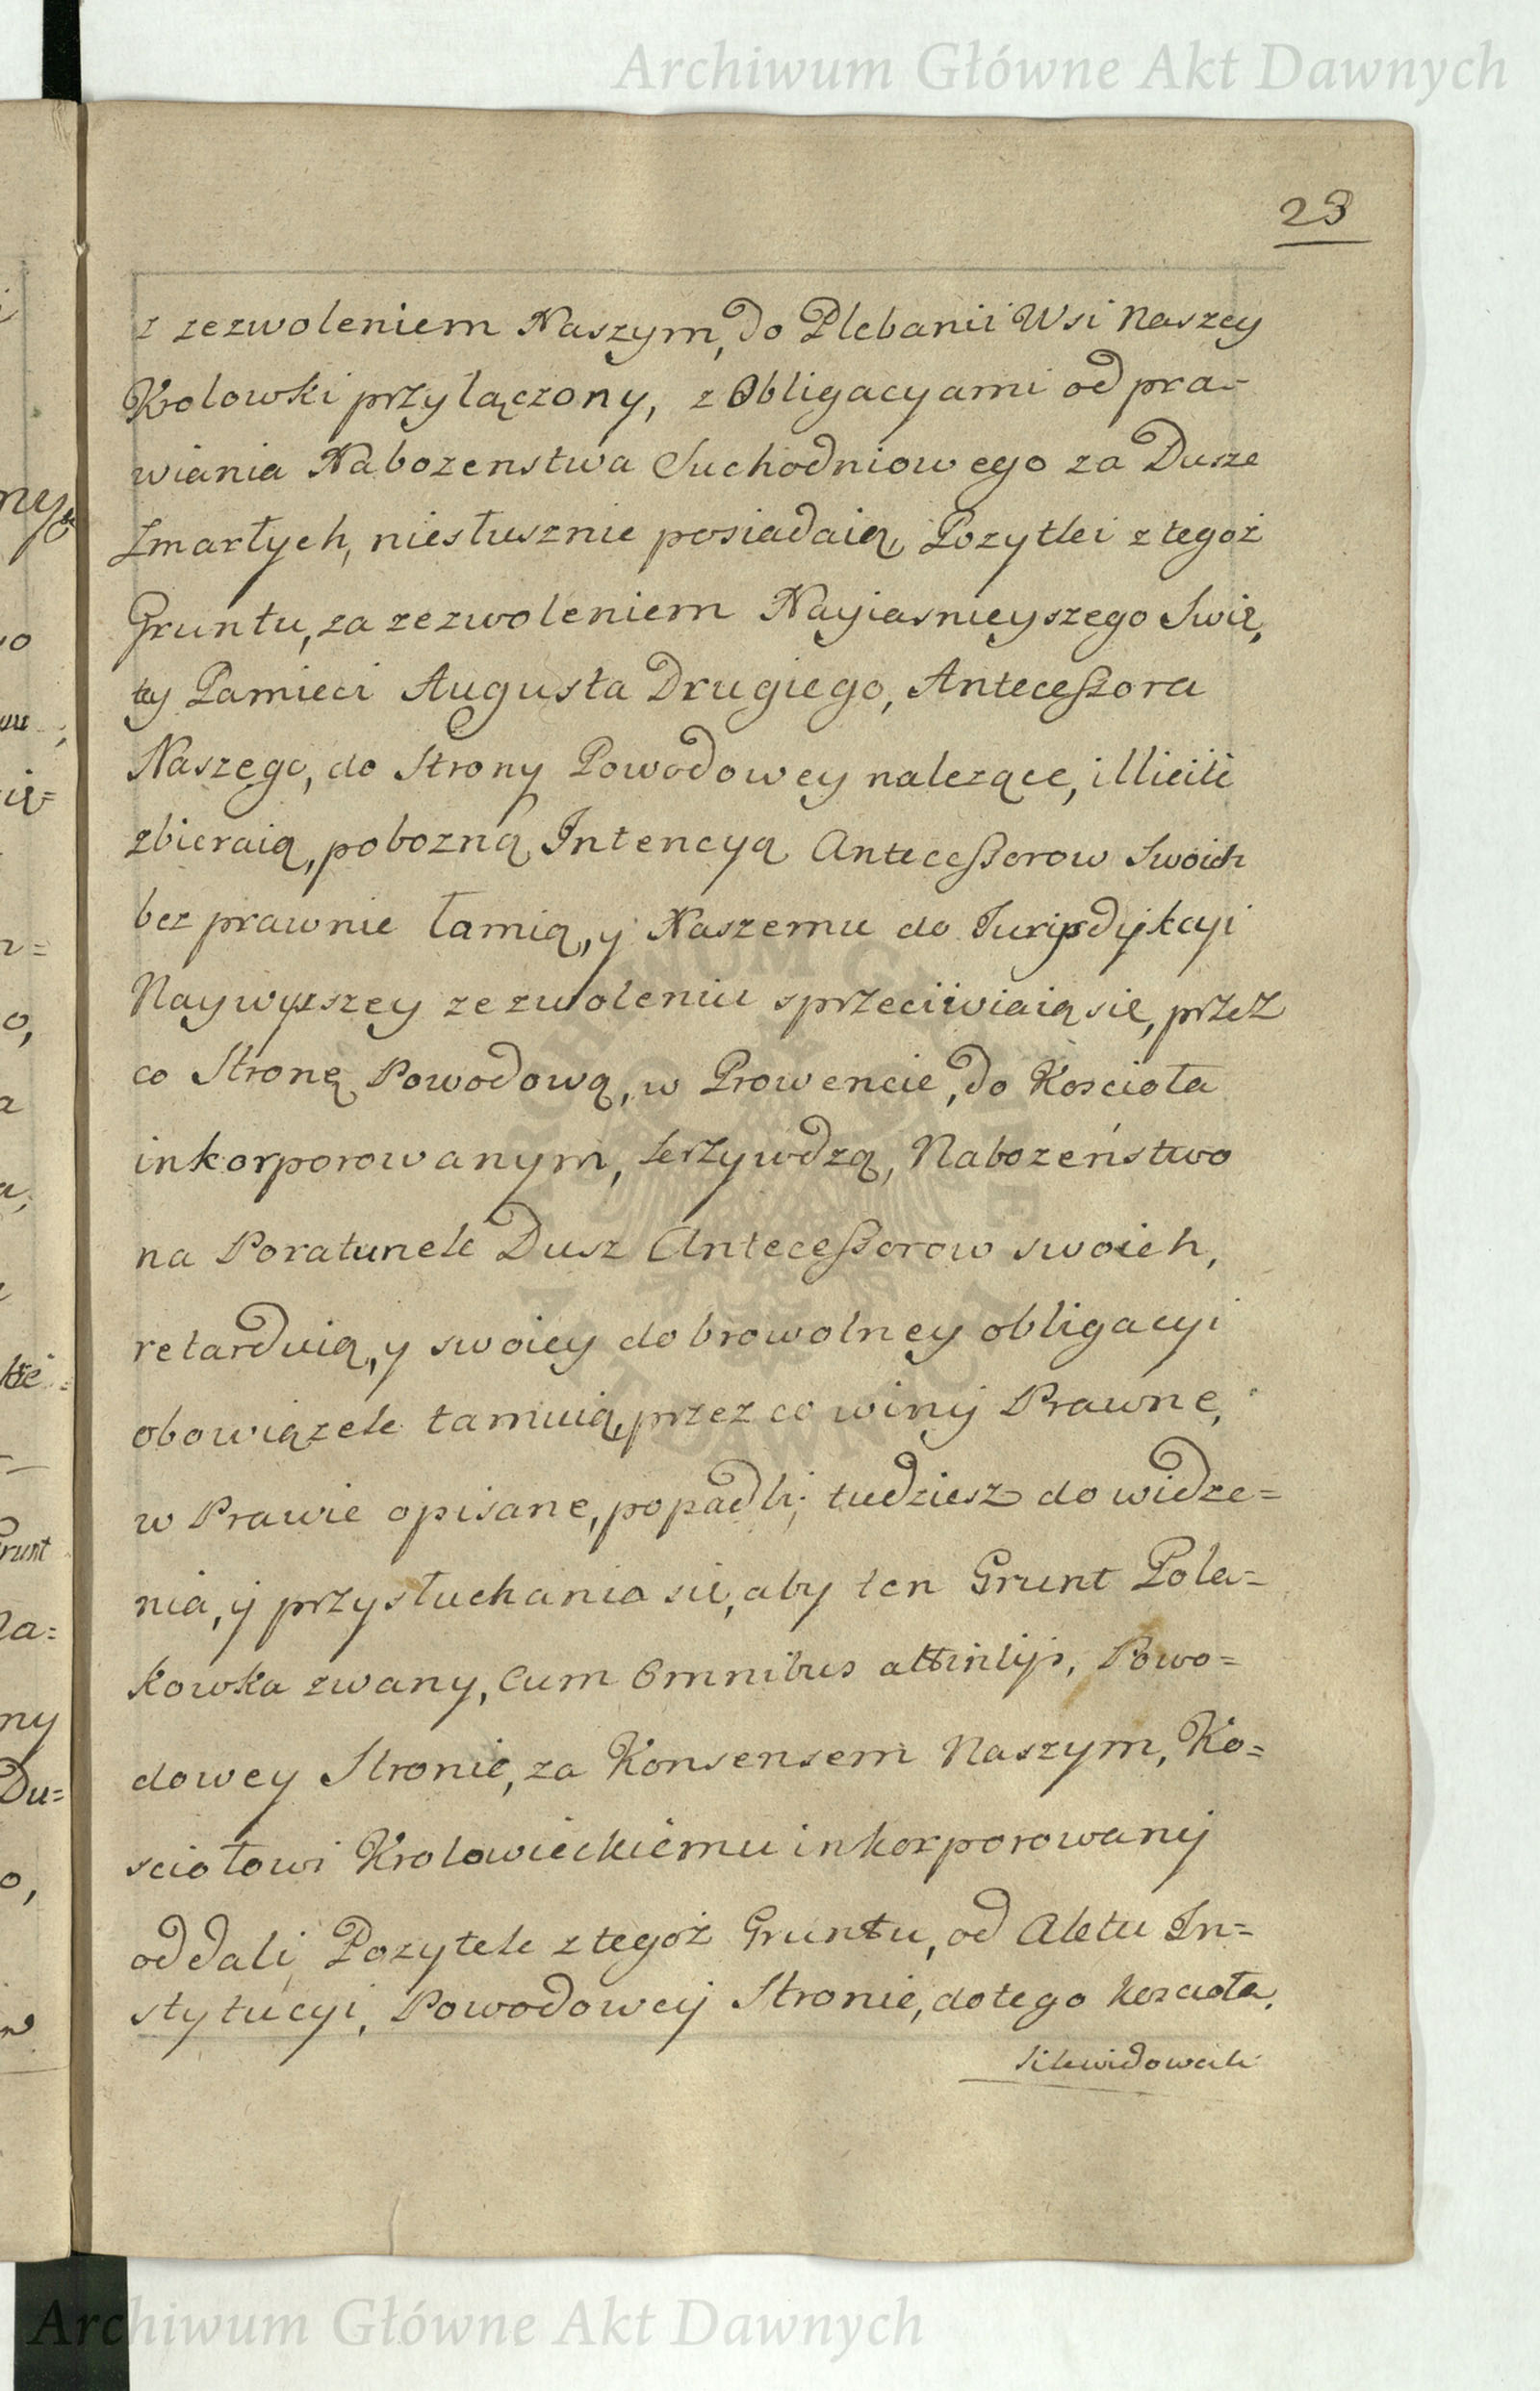 Archiwum Główne Akt Dawnych
23
z zezwoleniem Naszym, do Plebanii Wsi Naszey
Kolowki przyłączony, z Obligacyami odpra-
wiania Nabozenstwa Suchodniowego za Dusze
Zmarłych, niesłusznie posiadaią, Pozytki z tegoż
Gruntu, za zezwoleniem Nayiasnieyszego Swię,
tey Pamieci Augusta Drugiego, Antecessora
Naszego, do Strony Powodowey nalezące, illicite
zbieraią, pobozną Intencyą Antecessorow Swoich
bezprawnie łamią, y Naszemu do Jurisdykcyi
Naywyższey zezwoleniu sprzeciwiaią się, przez
co Stronę Powodową, w Prowencie, do Koscioła
inkorporowanym, krzywdzą, Nabozeństwo
na Poratunek Dusz Antecessorow swoich,
retarduią, y swoiey dobrowolney obligacyi
obowiązek tamuią, przez co winy Prawne,
w Prawie opisane, popadli; tudziesz do widze=
nia, y przysłuchania się, aby ten Grunt Pola=
kowka zwany, Cum Omnibus attinentijs, Powo=
dowey Stronie, za Konsensem Naszym, Ko=
sciołowi Krolowieckiemu inkorporowany
oddali, Pozytek z tegoż Gruntu, od Aktu In=
stytucyi, Powodowey Stronie, do tego Koscioła,
likwidowali
Archiwum Główne Akt Dawnych